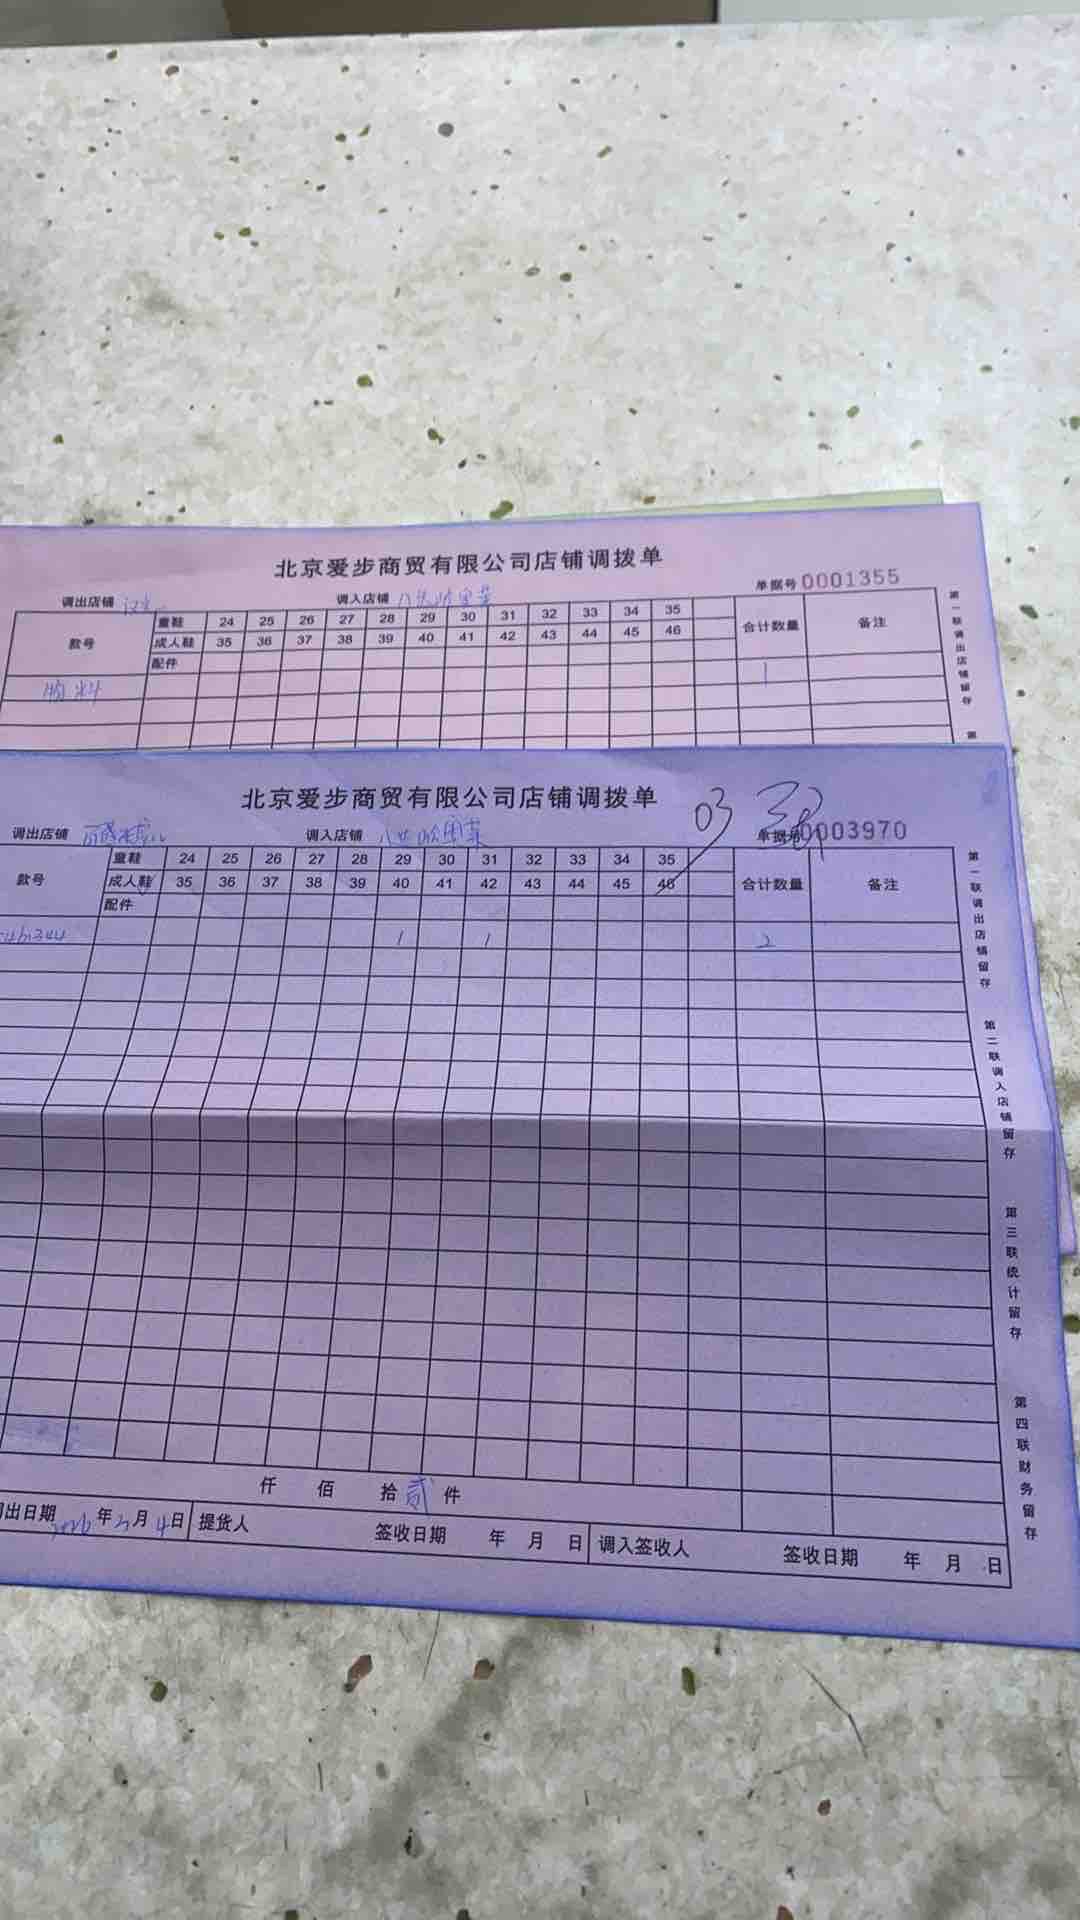 北京爱步商贸有限公司店铺调拨单
单据号0001355
调出店铺 调入店铺
款号 童鞋 24 25 26 27 28 29 30 31 32 33 34 35 合计数量 备注
成人鞋 35 36 37 38 39 40 41 42 43 44 45 46
配件
物料 1
第一联调出店铺留存
第
北京爱步商贸有限公司店铺调拨单
03
单据号0003970
调出店铺 调入店铺
款号 童鞋 24 25 26 27 28 29 30 31 32 33 34 35 合计数量 备注
成人鞋 35 36 37 38 39 40 41 42 43 44 45 46
配件
1 1 2
第一联调出店铺留存
第二联调入店铺留存
第三联统计留存
第四联财务留存
仟 佰 拾贰件
出日期 2026年3月4日 提货人 签收日期 年 月 日 调入签收人 签收日期 年 月 日